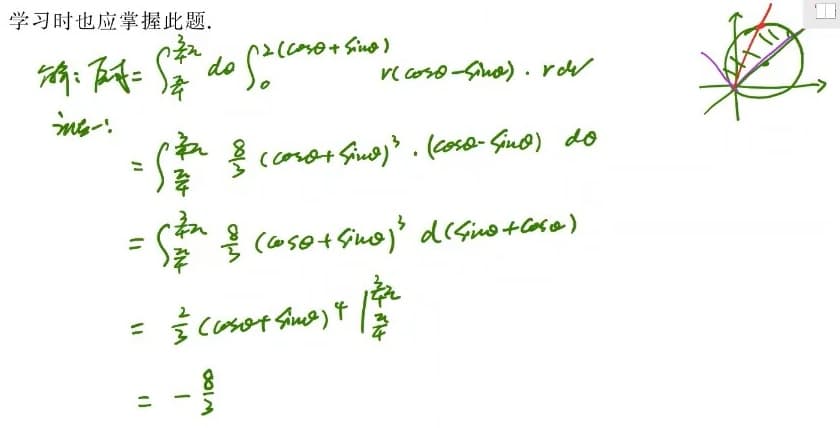 学习时也应掌握此题.
解: 原式= ∫_{π/4}^{3/4 π} dθ ∫_0^{2(cosθ+sinθ)} r(cosθ-sinθ)·rdr
法一:
= ∫_{π/4}^{3/4 π} 8/3 (cosθ+sinθ)^3 ·(cosθ-sinθ) dθ
= ∫_{π/4}^{3/4 π} 8/3 (cosθ+sinθ)^3 d(sinθ+cosθ)
= 2/3 (cosθ+sinθ)^4 |_{π/4}^{3/4 π}
= - 8/3